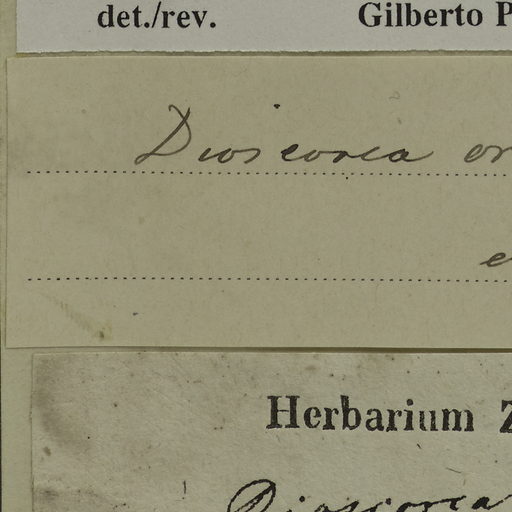 det./rev. Gilberto P
Dioscorea or
e
Herbarium Z
Dioscorea